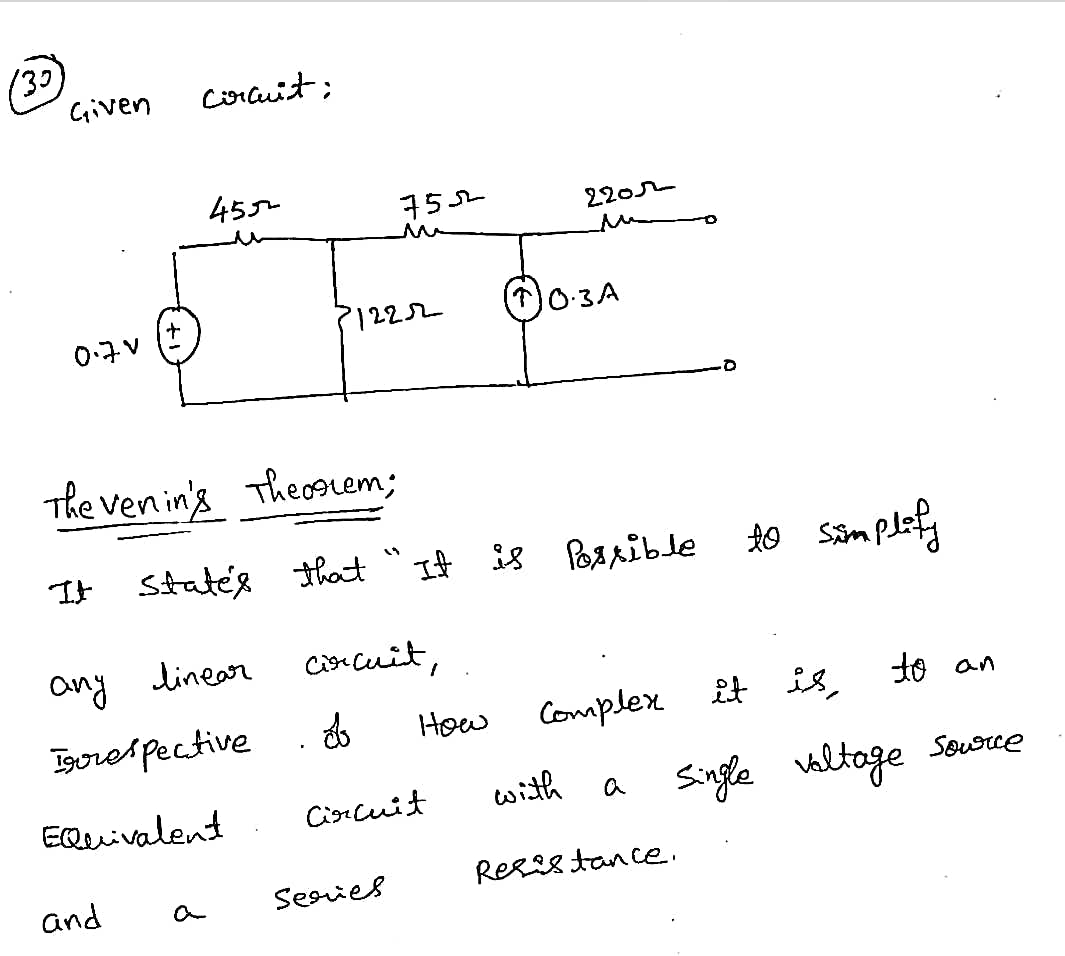 30
Given Circuit;
45Ω 75Ω 220Ω
0.7V + - 122Ω ↑ 0.3A
Thevenin's Theorem;
It state's that "It is Possible to Simplify
any linear circuit,
Irrespective of How Complex it is, to an
EQuivalent Circuit with a Single Voltage Source
and a Series Resistance.